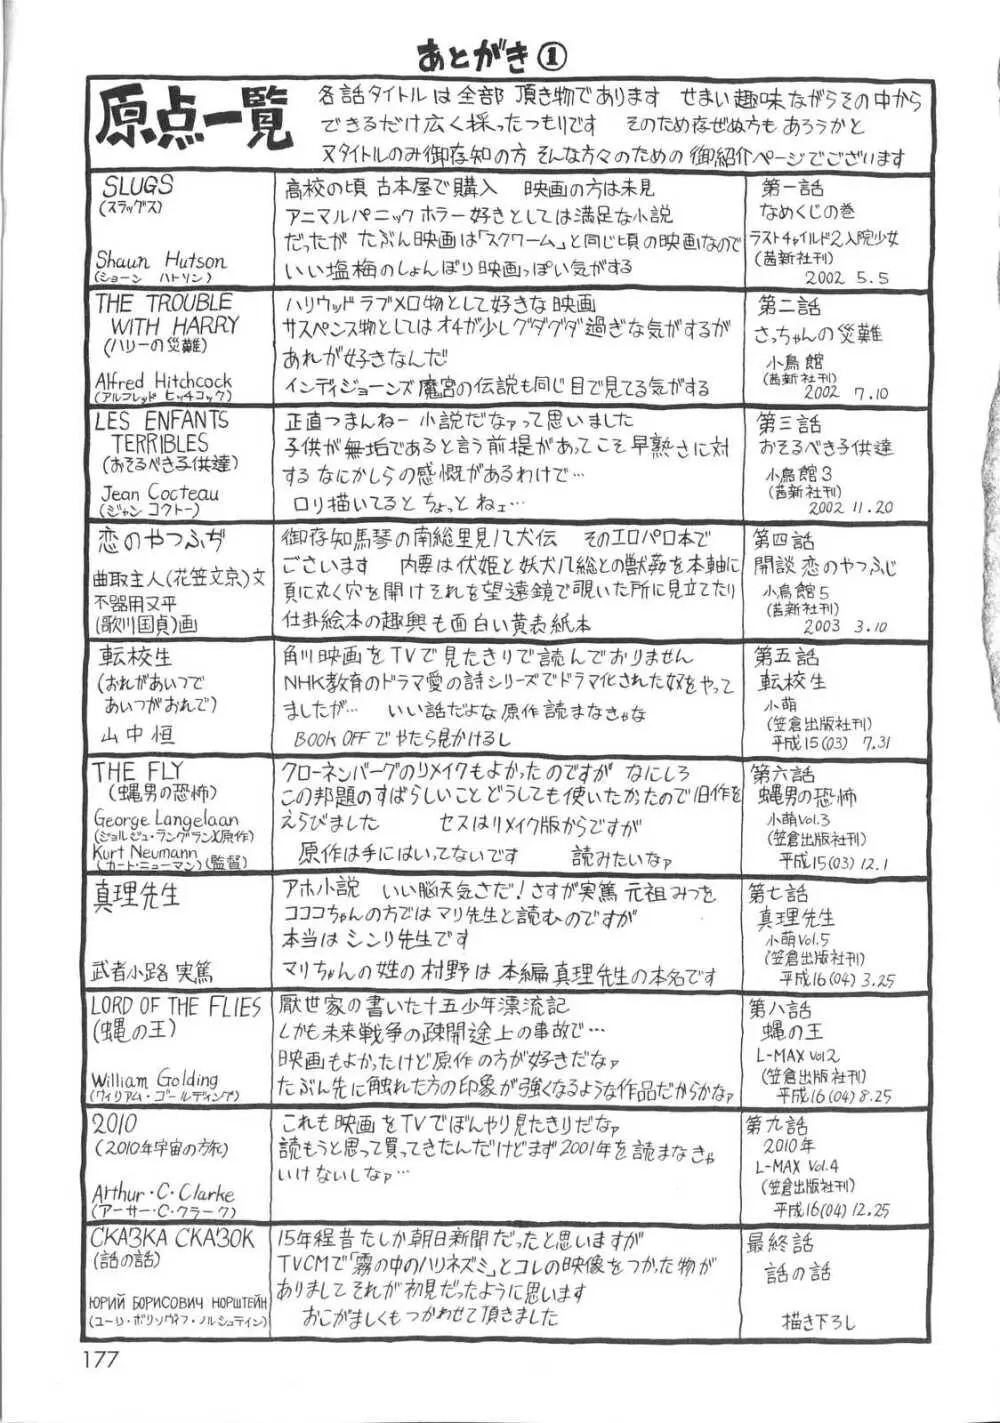 あとがき①
原点一覧
各話タイトルは全部 頂き物であります せまい趣味ながらその中から
できるだけ広く採ったつもりです そのため存ぜぬ方も あろうかと
又タイトルのみ御存知の方 そんな方々のための 御紹介ページでございます
SLUGS
(スラッグス)
Shaun Hutson
(ショーン ハトソン)
高校の頃 古本屋で購入 映画の方は未見
アニマルパニックホラー好きとしては満足な小説
だったが たぶん映画は「スクワーム」と同じ頃の映画なので
いい塩梅のしょんぼり映画っぽい気がする
第一話
なめくじの巻
ラストチャイルド2入院少女
(茜新社刊)
2002 5.5
THE TROUBLE
WITH HARRY
(ハリーの災難)
Alfred Hitchcock
(アルフレッド ヒッチコック)
ハリウッド ラブメロ物として好きな 映画
サスペンス物としてはオチが少しグダグダ過ぎな気がするが
あれが好きなんだ
インディジョーンズ魔宮の伝説も同じ目で見てる気がする
第二話
さっちゃんの災難
小鳥館
(茜新社刊)
2002 7.10
LES ENFANTS
TERRIBLES
(おそるべき子供達)
Jean Cocteau
(ジャン コクトー)
正直つまんねー 小説だなァって思いました
子供が無垢であると言う前提があってこそ早熟さに対
する なにかしらの感慨があるわけで…
ロリ描いてると ちょっと ねェ…
第三話
おそるべき子供達
小鳥館3
(茜新社刊)
2002 11.20
恋のやつふぢ
曲取主人(花笠文京)文
不器用又平
(歌川国貞)画
御存知馬琴の南総里見八犬伝 そのエロパロ本で
ございます 内要は伏姫と妖犬八総との獣姦を本軸に
頁に丸く穴を開けそれを望遠鏡で覗いた所に見立てたり
仕掛絵本の趣興も面白い黄表紙本
第四話
開談 恋のやつふじ
小鳥館5
(茜新社刊)
2003 3.10
転校生
(おれがあいつで
あいつがおれで)
山中恒
角川映画をTVで見たきりで読んでおりません
NHK教育のドラマ愛の詩シリーズでドラマ化された奴をやって
ましたが… いい話だよな 原作 読まなきゃな
BOOK OFFでやたら見かけるし
第五話
転校生
小萌
(笠倉出版社刊)
平成15(03) 7.31
THE FLY
(蝿男の恐怖)
George Langelaan
(ジョルジュ・ランゲラン)(原作)
Kurt Neumann
(カート・ニューマン)(監督)
クローネンバーグのリメイクもよかったのですが なにしろ
この邦題のすばらしいこと どうしても使いたかったので旧作を
えらびました セスはリメイク版からですが
原作は手にはいってないです 読みたいなァ
第六話
蝿男の恐怖
小萌Vol.3
(笠倉出版社刊)
平成15(03) 12.1
真理先生
武者小路 実篤
アホ小説 いい脳天気さだ！さすが実篤 元祖みつを
コココちゃんの方ではマリ先生と読むのですが
本当は シンリ先生です
マリちゃんの姓の 村野は 本編真理先生の本名です
第七話
真理先生
小萌Vol.5
(笠倉出版社刊)
平成16(04) 3.25
LORD OF THE FLIES
(蝿の王)
William Golding
(ウィリアム・ゴールディング)
厭世家の書いた十五少年漂流記
しかも未来戦争の疎開途上の事故で…
映画もよかったけど原作の方が好きだなァ
たぶん先に触れた方の印象が強くなるような作品だからかなァ
第八話
蝿の王
L-MAX Vol.2
(笠倉出版社刊)
平成16(04) 8.25
2010
(2010年宇宙の旅)
Arthur・C・Clarke
(アーサー・C・クラーク)
これも映画をTVでぼんやり見たきりだなァ
読もうと思って買ってきたんだけどまず2001年を読まなきゃ
いけないしなァ…
第九話
2010年
L-MAX Vol.4
(笠倉出版社刊)
平成16(04) 12.25
СКАЗКА СКАЗОК
(話の話)
ЮРИЙ БОРИСОВИЧ НОРШТЕЙН
(ユーリ・ボリソヴィフ・ノルシュテイン)
15年程昔 たしか朝日新聞だったと思いますが
TVCMで「霧の中のハリネズミ」とコレの映像をつかった物が
ありまして それが初見だったように思います
おこがましくも つかわせて頂きました
最終話
話の話
描き下ろし
177